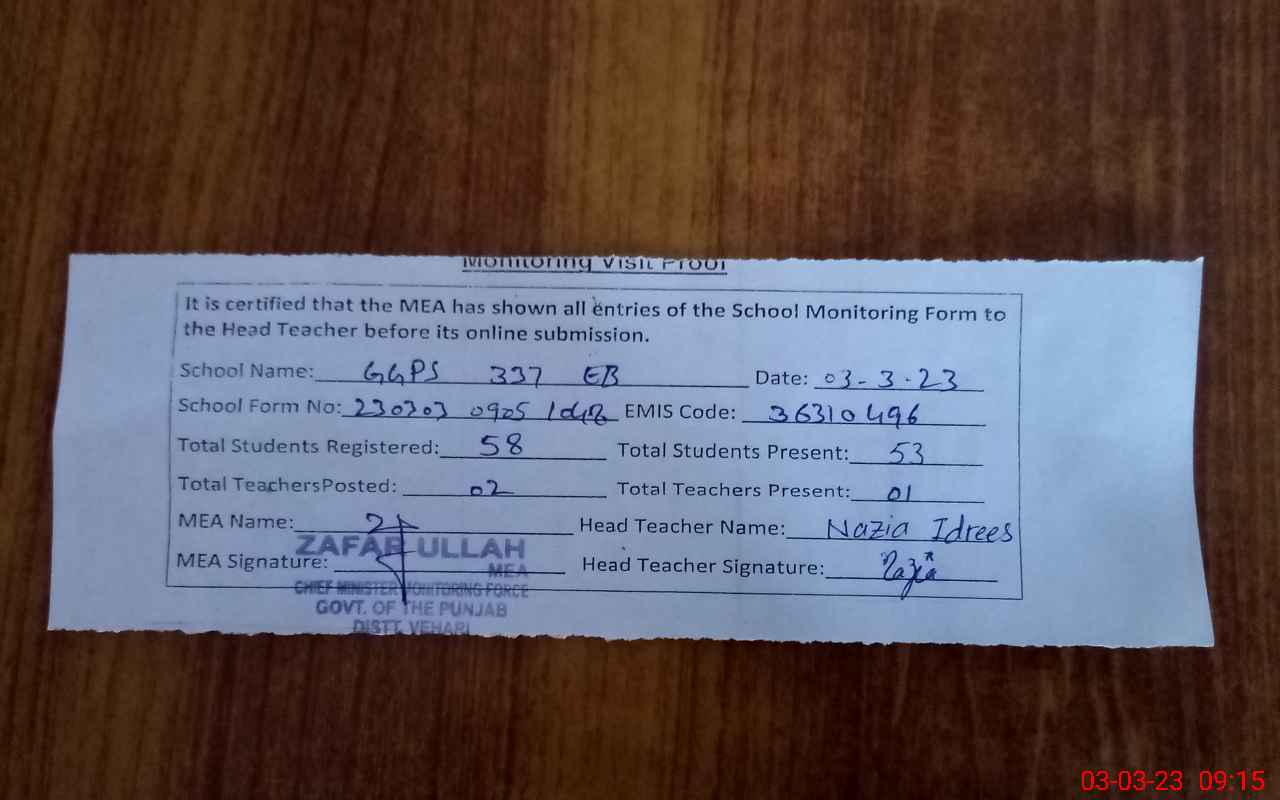 Monitoring Visit Proof
It is certified that the MEA has shown all entries of the School Monitoring Form to
the Head Teacher before its online submission.
School Name: GGPS 337 EB Date: 03-3-23
School Form No: 230303 0905 EMIS Code: 36310496
Total Students Registered: 58 Total Students Present: 53
Total TeachersPosted: 02 Total Teachers Present: 01
MEA Name: Head Teacher Name: Nazia Idrees
ZAFAR ULLAH
MEA Signature: Head Teacher Signature: Nazia
MEA
CHIEF MINISTER MONITORING FORCE
GOVT. OF THE PUNJAB
DISTT. VEHARI
03-03-23 09:15